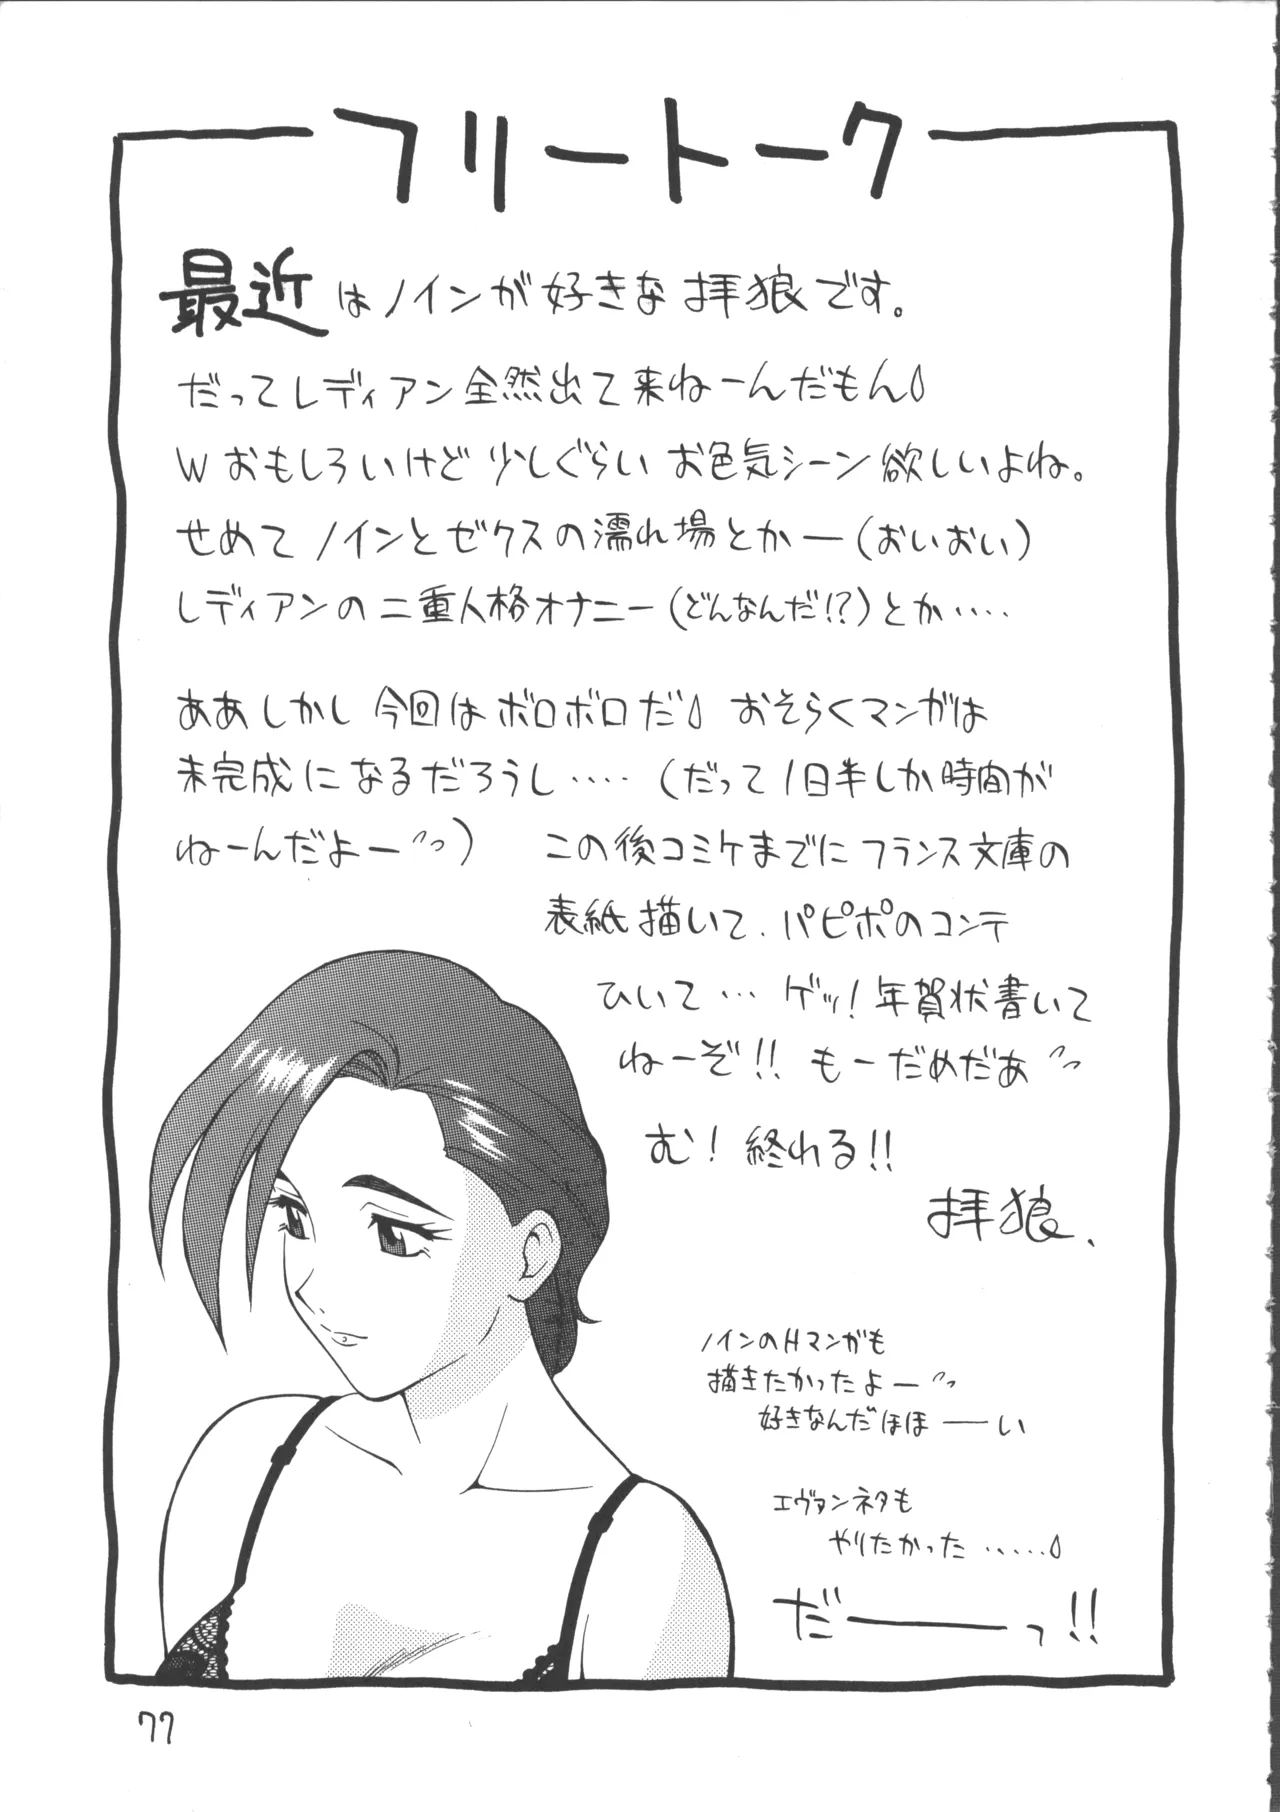 フリートーク
最近はノインが好きな拝狼です。
だってレディアン全然出て来ねーんだもん
Wおもしろいけど少しぐらいお色気シーン欲しいよね。
せめてノインとゼクスの濡れ場とかー(おいおい)
レディアンの二重人格オナニー(どんなんだ!?)とか‥‥
ああしかし今回はボロボロだ おそらくマンガは
未完成になるだろうし‥‥(だって1日半しか時間が
ねーんだよー)
この後コミケまでにフランス文庫の
表紙描いて、パピポのコンテ
ひいて…ゲッ!年賀状書いて
ねーぞ!!もーだめだあ
む!終れる!!
拝狼、
ノインのHマンガも
描きたかったよー
好きなんだほほーい
エヴァンネタも
やりたかった‥‥‥
だーっ!!
77